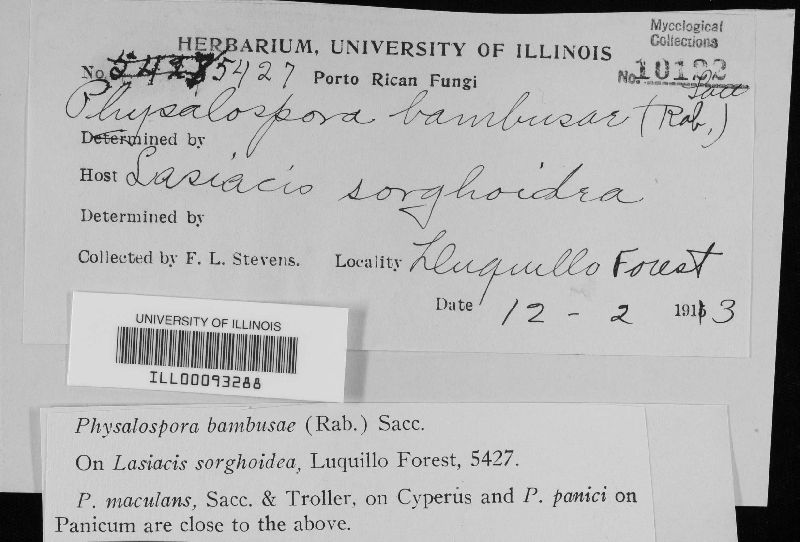 Mycological
Collections
HERBARIUM, UNIVERSITY OF ILLINOIS
No. 5427 Porto Rican Fungi No. 10122
Physalospora bambusae (Rab.) Sacc
Determined by
Host Lasiacis sorghoidea
Determined by
Collected by F. L. Stevens. Locality Luquillo Forest
Date 12 - 2 1913
UNIVERSITY OF ILLINOIS
ILL00093288
Physalospora bambusae (Rab.) Sacc.
On Lasiacis sorghoidea, Luquillo Forest, 5427.
P. maculans, Sacc. & Troller, on Cyperus and P. panici on
Panicum are close to the above.